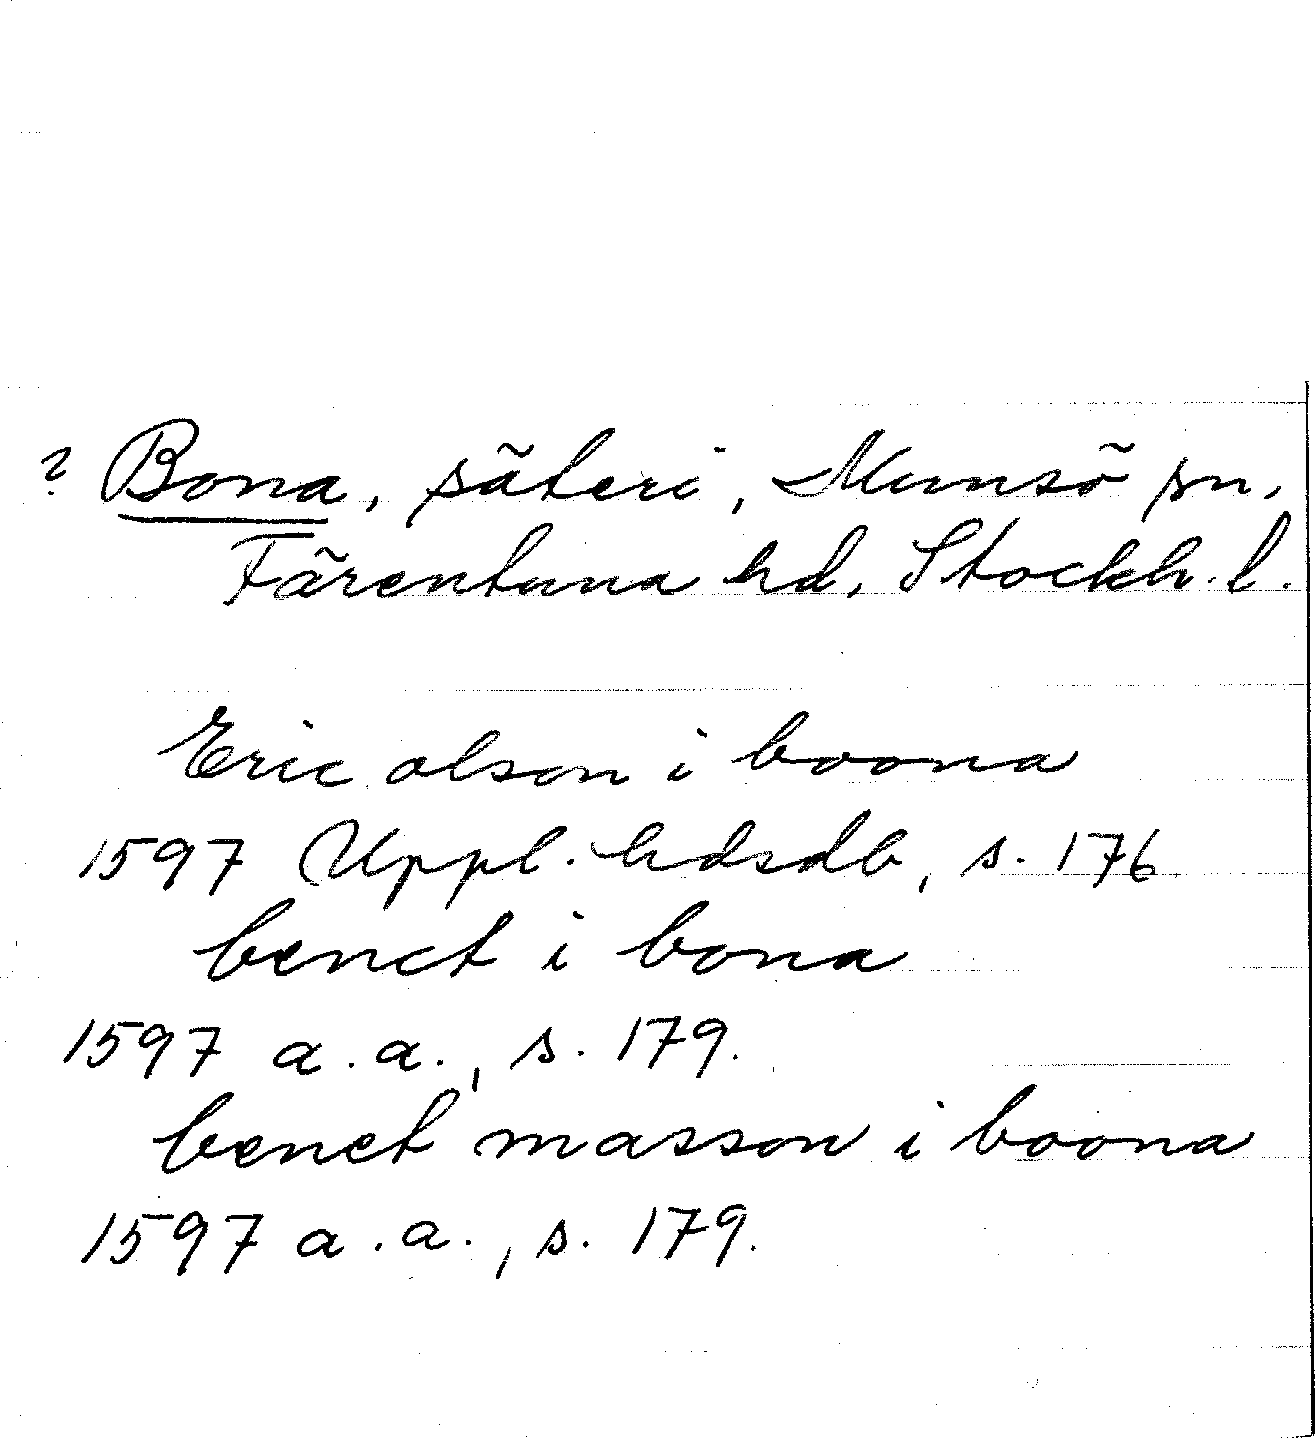 ? Bona, säteri, Munsö sn,
Färentuna hd, Stockh. l.
Eric olson i boona
1597 Uppl. hdsdb, s. 176
benct i bona
1597 a.a., s. 179.
benct masson i boona
1597 a.a., s. 179.